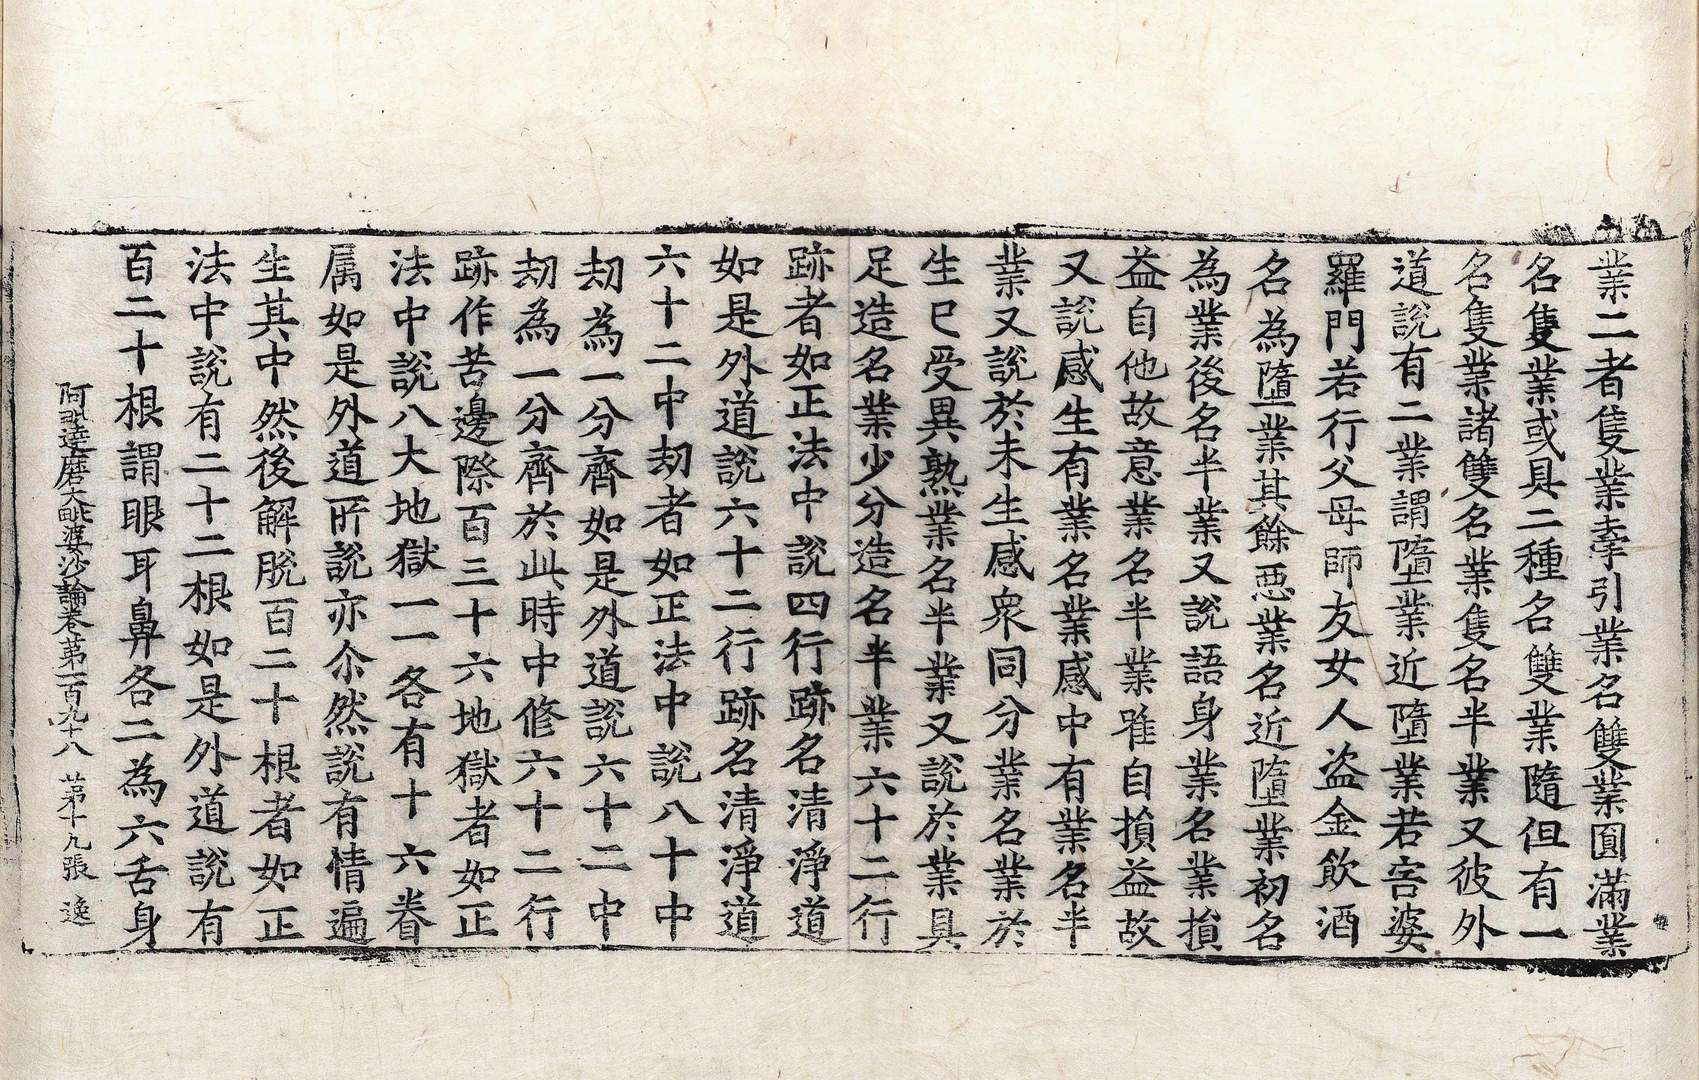 業二者隻業牽引業名雙業圓滿業
名隻業或具二種名雙業隨但有一
名隻業諸雙名業隻名半業又彼外
道說有二業謂墮業近墮業若害婆
羅門若行父母師友女人盜金飲酒
名為墮業其餘惡業名近墮業初名
為業後名半業又說語身業名業損
益自他故意業名半業唯自損益故
又說感生有業名業感中有業名半
業又說於未生感衆同分業名業於
生已受異熟業名半業又說於業具
足造名業少分造名半業六十二行
跡者如正法中說四行跡名清淨道
如是外道說六十二行跡名清淨道
六十二中刧者如正法中說八十中
刧為一分齊如是外道說六十二中
刧為一分齊於此時中修六十二行
跡作苦邊際百三十六地獄者如正
法中說八大地獄一一各有十六眷
属如是外道所說亦尒然說有情遍
生其中然後解脫百二十根者如正
法中說有二十二根如是外道說有
百二十根謂眼耳鼻各二為六舌身
阿毗達磨大毗婆沙論卷第一百九十八 第十九張 逸